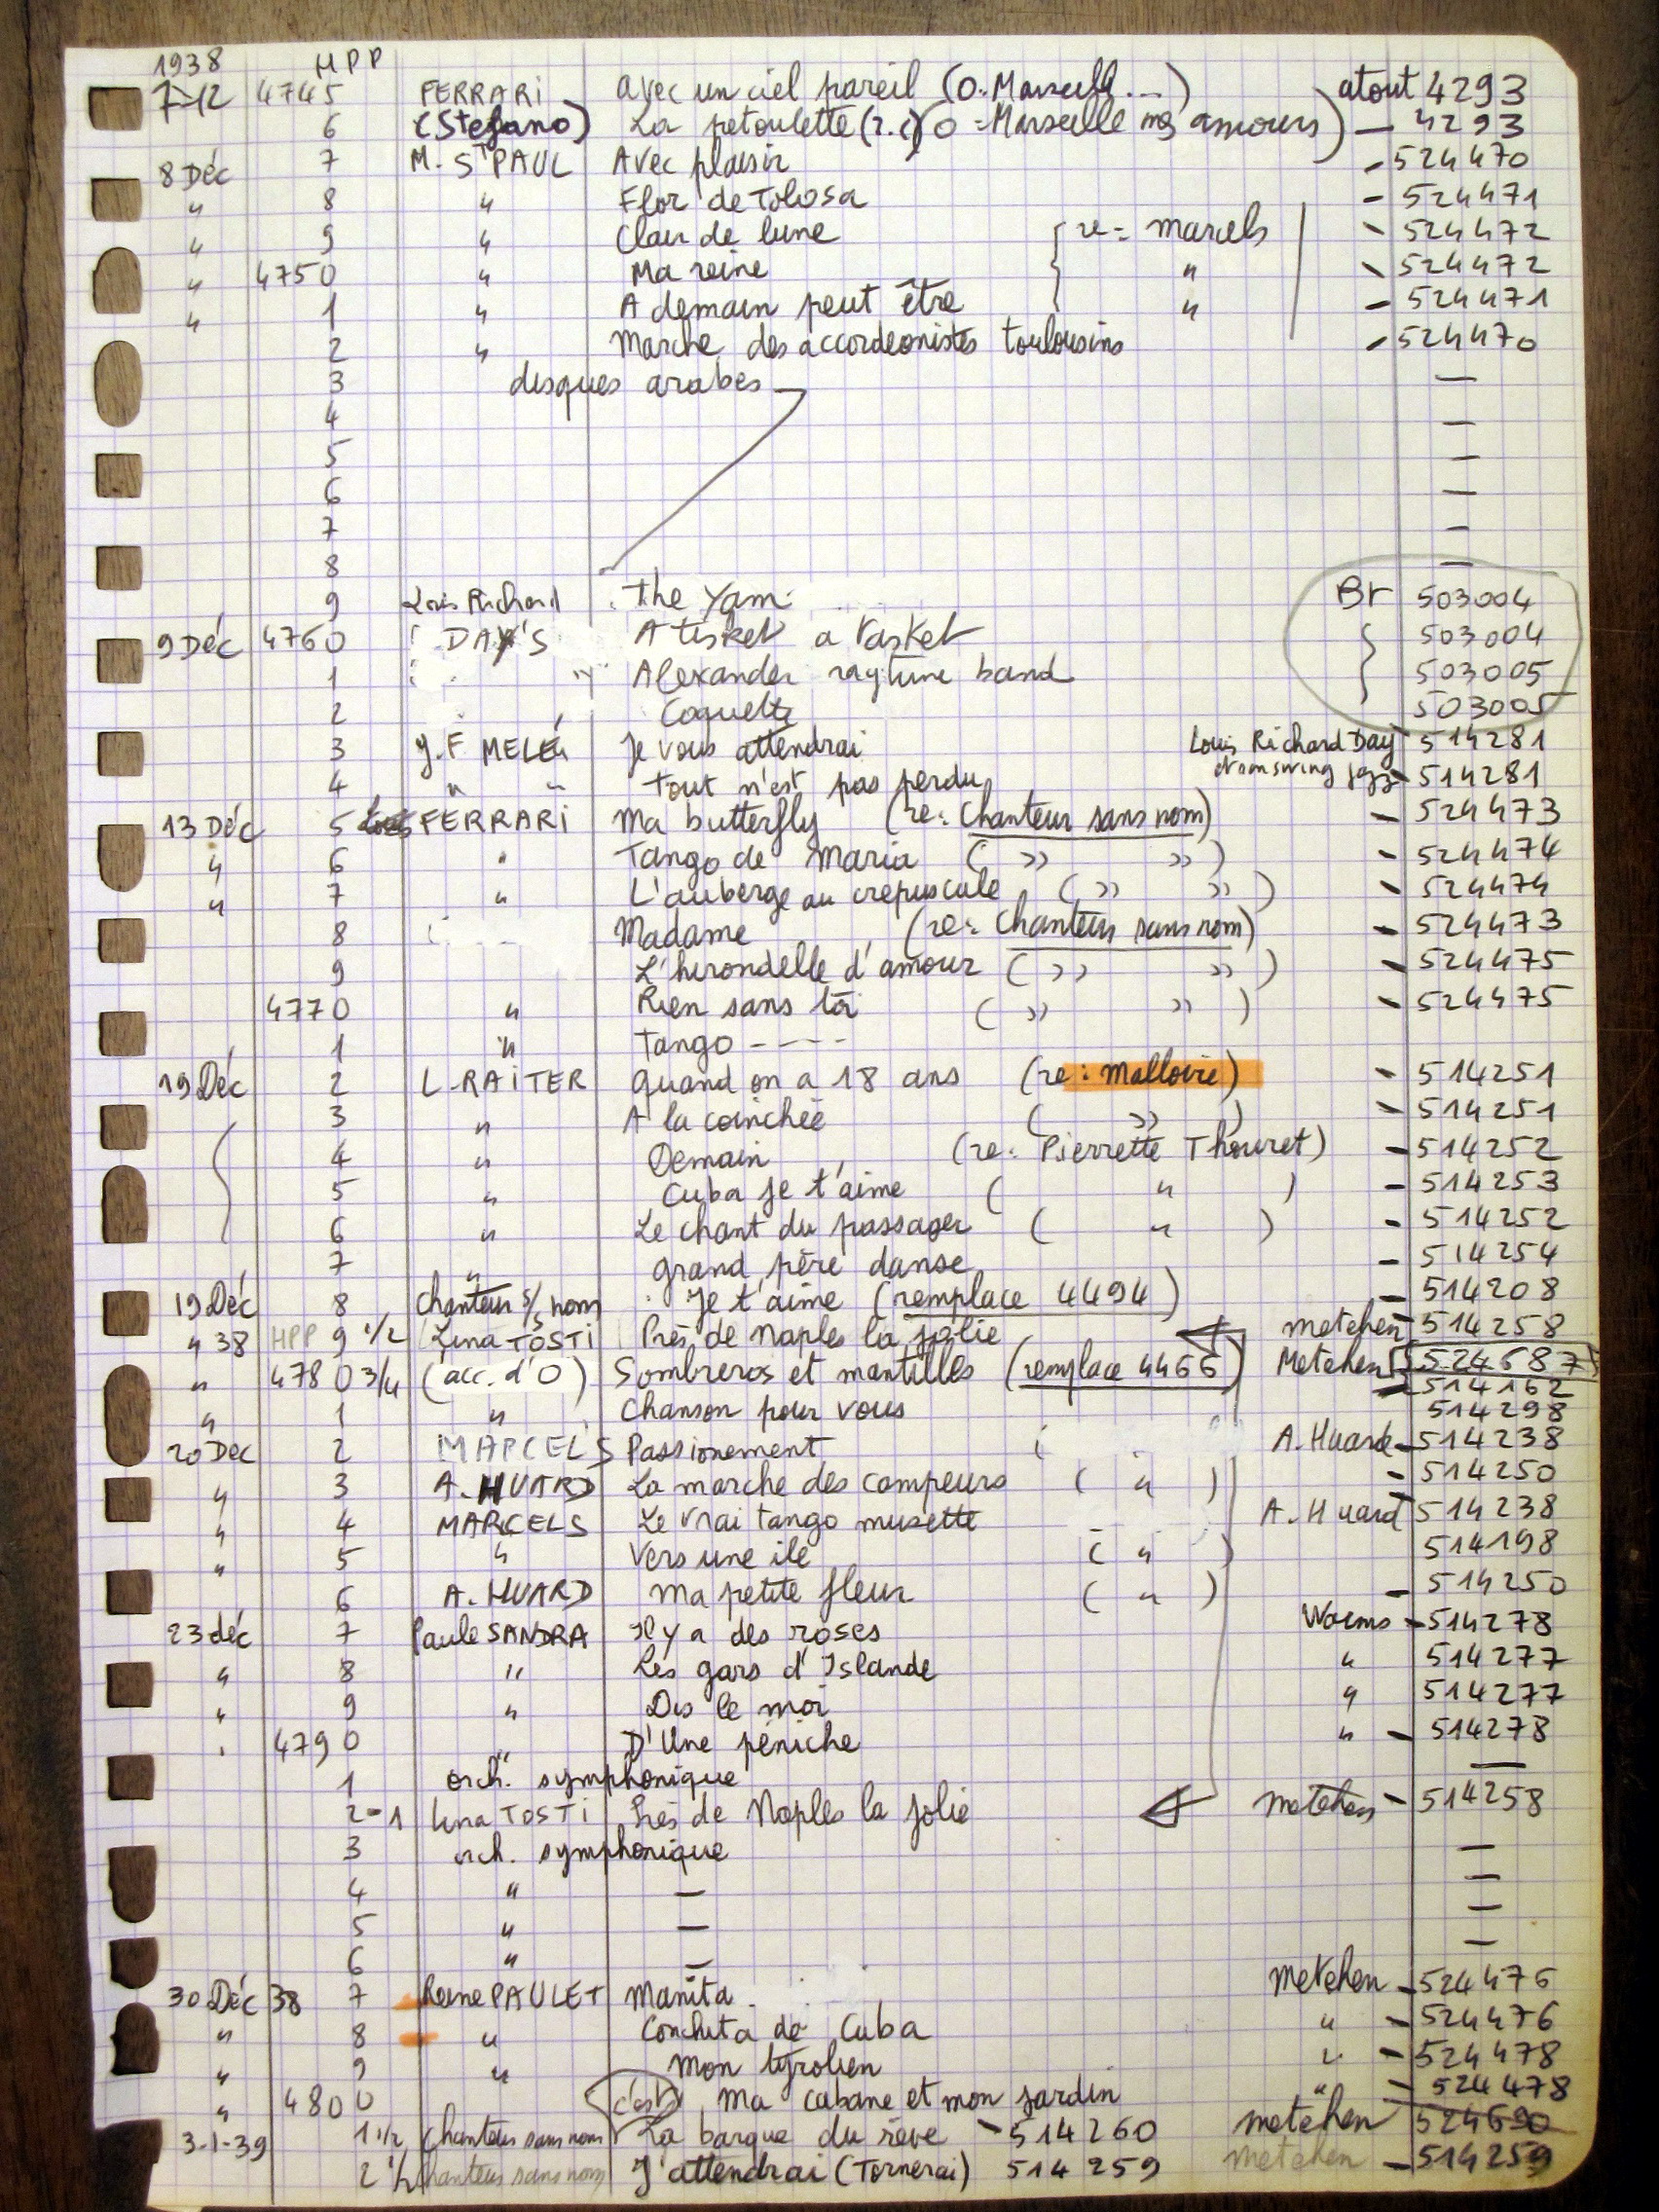 1938 HPP
7-12 4745 FERRARI Avec un ciel pareil (O. Marseille ...) atout 4293
6 (Stefano) La petoulette (r.c) (O = Marseille mes amours) - 4293
8 Déc 7 M. St PAUL Avec plaisir - 524470
" 8 " Flor de Tolosa - 524471
" 9 " Clair de lune { re = marcels - 524472
" 4750 " Ma reine " - 524472
" 1 " A demain peut être " - 524471
2 " Marche des accordeonistes toulousins - 524470
3 disques arabes —
4 —
5 —
6 —
7 —
8 —
9 Louis Richard The Yam Br 503004
9 Déc 4760 DAY'S A tisket a tasket 503004
1 " Alexander ragtime band 503005
2 Coquette 503005
3 J.F MELEH Je vous attendrai Louis Richard Day 514281
4 " " tout n'est pas perdu jazz - 514281
13 Déc 5 FERRARI Ma butterfly (re: Chanteur sans nom) - 524473
" 6 " Tango de Maria ( » » ) - 524474
" 7 " L'auberge au crepuscule ( » » ) - 524474
8 Madame (re: Chanteur sans nom) - 524473
9 L'hirondelle d'amour ( » » ) - 524475
4770 " Rien sans toi ( » » ) - 524475
1 " Tango - - - -
19 Déc 2 L. RAITER Quand on a 18 ans (re: Malloire) - 514251
3 " A la coinchée ( » ) - 514251
4 " Demain (re: Pierrette Thouret) - 514252
5 " Cuba je t'aime ( " ) - 514253
6 " Le chant du passager ( " ) - 514252
7 " Grand père danse - 514254
19 Déc 8 Chanteur s/s nom Je t'aime (remplace 4494) - 514208
" 38 HPP 9 1/2 Lina TOSTI Près de Naples la jolie metehen - 514258
" 4780 3/4 (acc. d'O) Sombreros et mantilles (remplace 4466) Metehen 524687
- 514162
" 1 " Chanson pour vous 514298
20 Dec 2 MARCELS Passionement A. Huard - 514238
" 3 A. HUARD La marche des campeurs ( " ) - 514250
" 4 MARCELS Le vrai tango musette A. Huard 514238
" 5 " Vers une ile ( " ) 514198
6 A. HUARD Ma petite fleur ( " ) - 514250
23 déc 7 Paule SANDRA Il y a des roses Worms - 514278
" 8 " Les gars d'Islande " 514277
" 9 " Dis le moi " 514277
" 4790 " D'Une péniche " - 514278
1 orch. symphonique —
2-1 Lina TOSTI Près de Naples la jolie metehen - 514258
3 orch. symphonique —
4 " — —
5 " — —
6 " — —
30 Déc 38 7 Reine PAULET Manita metehen - 524476
" 8 " Conchita de Cuba " - 524476
" 9 " Mon tyrolien " - 524478
" 4800 (c'est) Ma cabane et mon jardin " - 524478
3-1-39 1 1/2 Chanteur sans nom La barque du rêve - 514260 metehen 524690
2 1/2 Chanteur sans nom J'attendrai (Tornerai) 514259 metehen - 514259